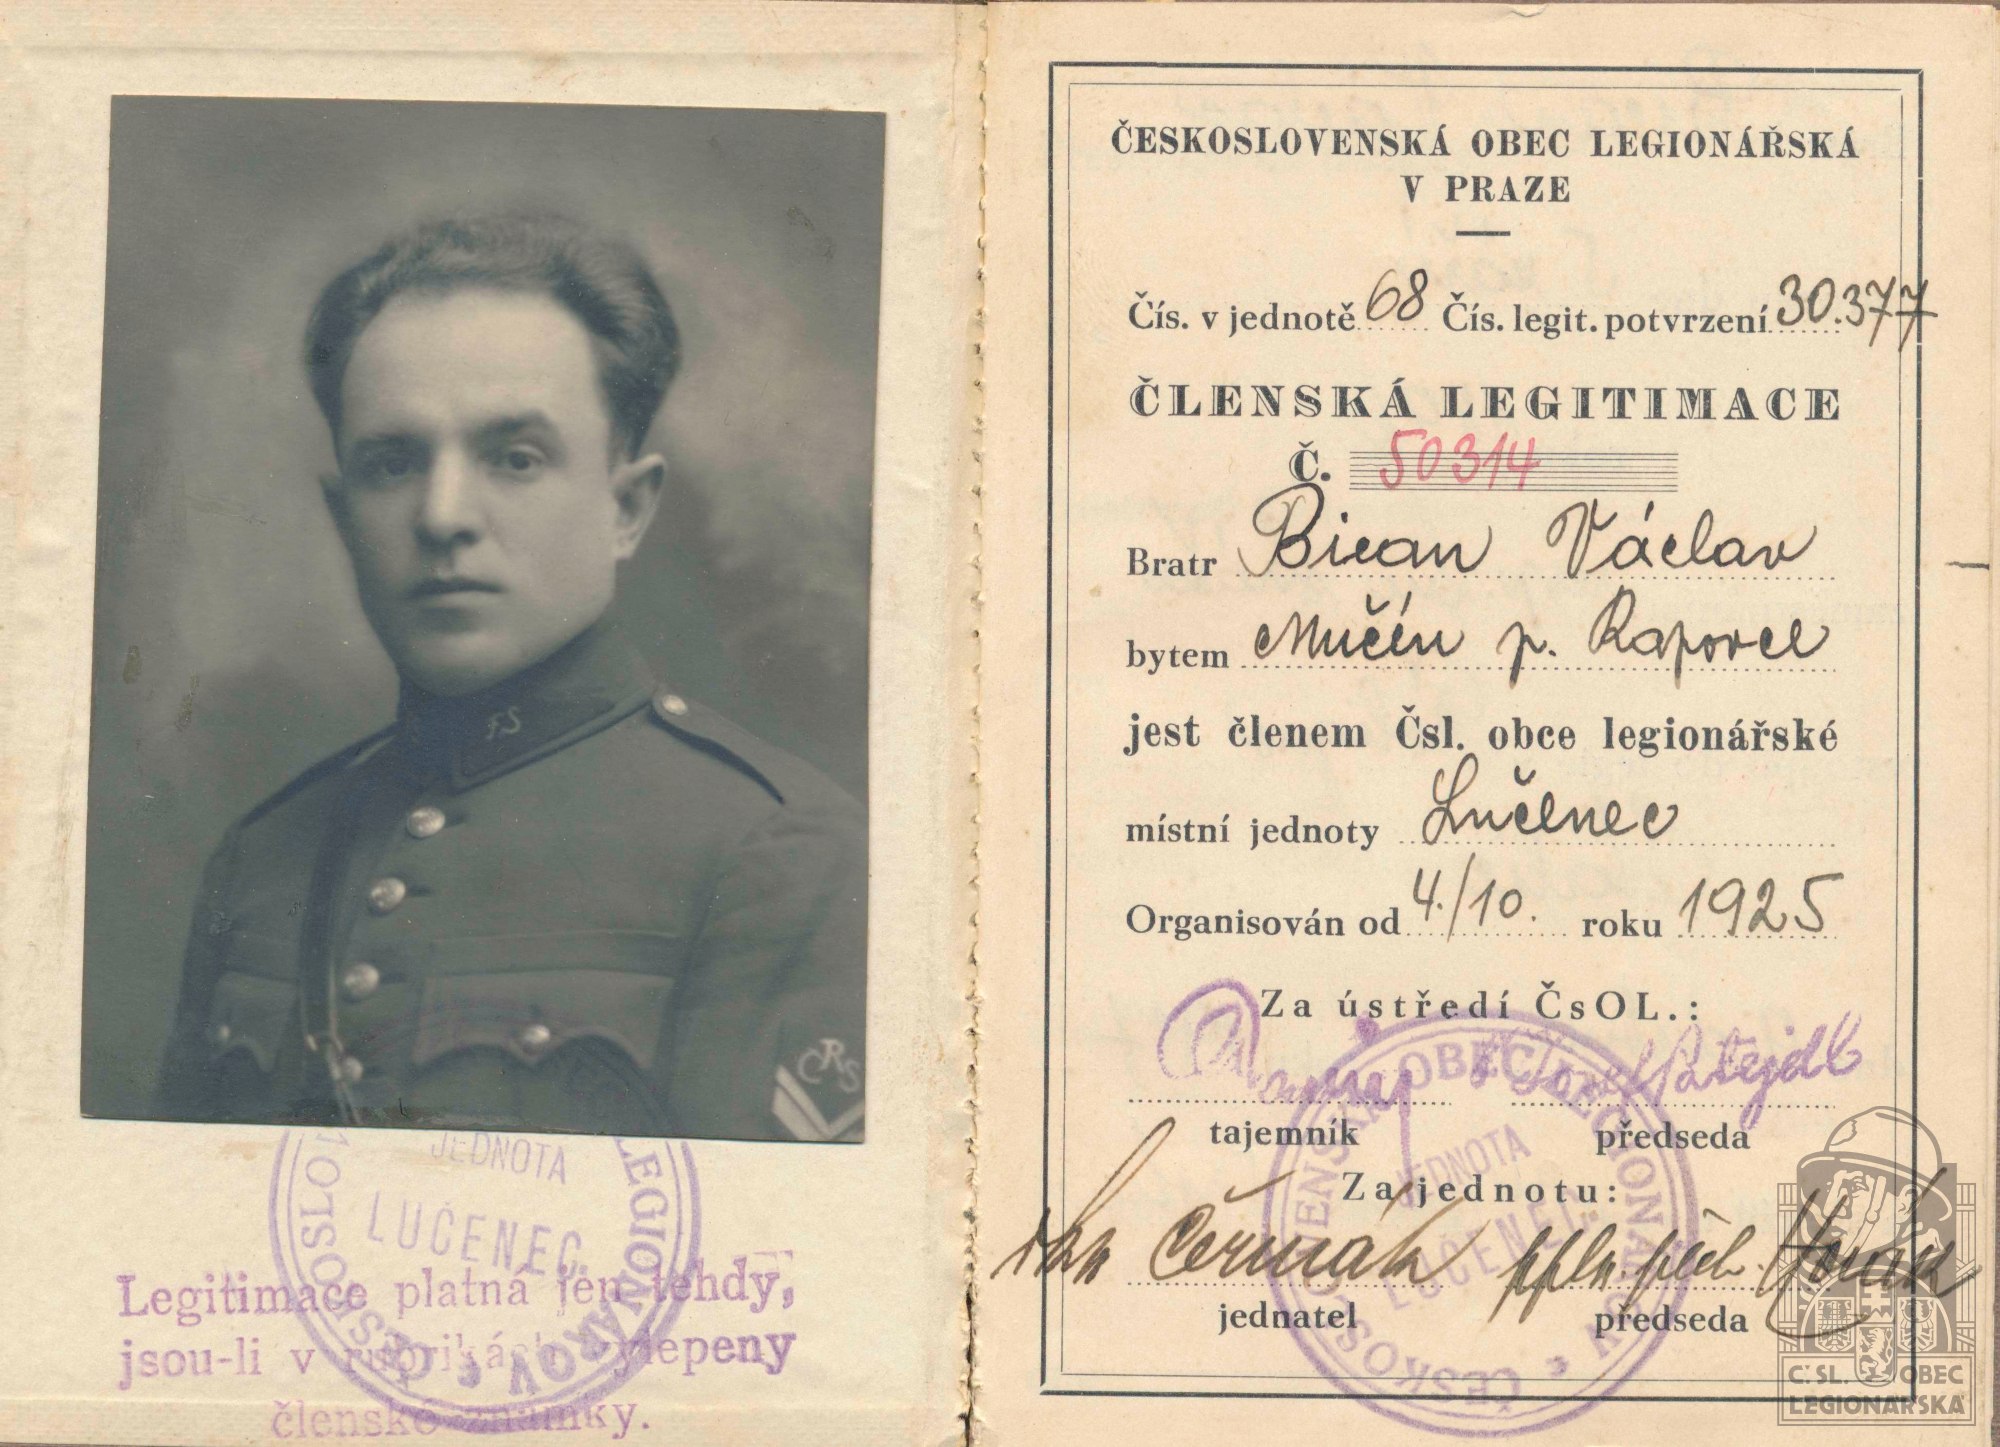 FS
CRS
JEDNOTA
LUČENEC
Legitimace platná jen tehdy,
jsou-li v rubrikách vylepeny
členské známky.
ČESKOSLOVENSKÁ OBEC LEGIONÁŘSKÁ
V PRAZE
Čís. v jednotě 68 Čís. legit. potvrzení 30.377
ČLENSKÁ LEGITIMACE
Č. 50314
Bratr Bican Václav
bytem Mučín p. Rapovce
jest členem Čsl. obce legionářské
místní jednoty Lučenec
Organisován od 4./10. roku 1925
Za ústředí ČsOL.:
Josef Patejdl
tajemník předseda
Za jednotu:
Čermák
jednatel předseda
JEDNOTA
LUČENEC
ČSL. OBEC
LEGIONÁŘSKÁ